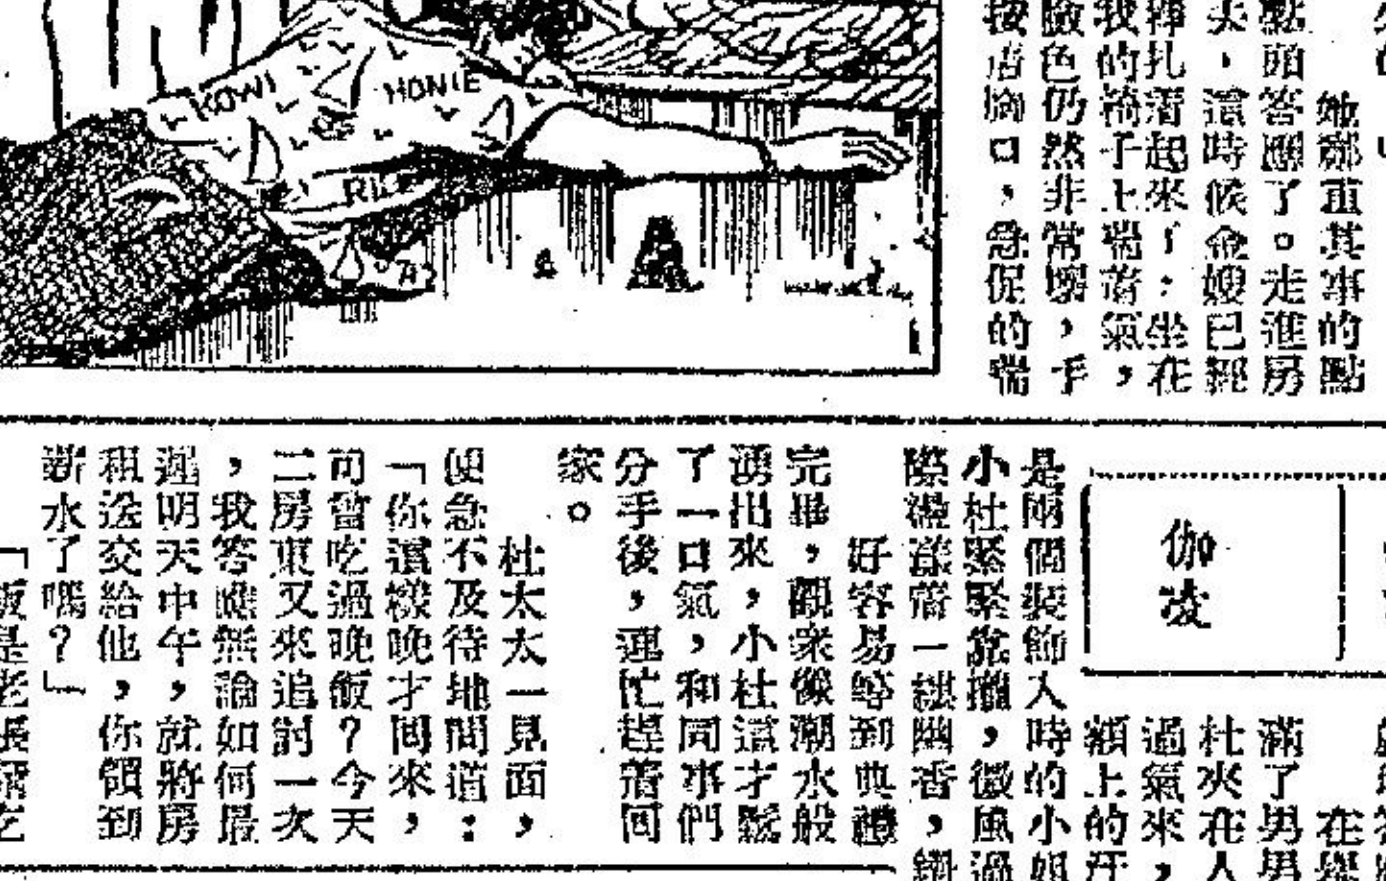 她鄭重其事的點
點頭答應了。走進房
這時候金嫂已經
掙扎着起來;坐在
我的椅子上喘着氣,
臉色仍然非常壞,手
按着胸口,急促的喘
KOWI
HONIE
伽凌
滿了男男
杜夾在人
過氣來,
額上的汗
是兩個裝飾入時的小姐
小杜緊緊靠攏,微風過
際盪漾着一縷幽香,
好容易等到典禮
完畢,觀衆像潮水般
湧出來,小杜這才鬆
了一口氣,和同事們
分手後,連忙趕着回
家。
杜太太一見面,
便急不及待地問道:
「你這樣晚才回來,
司曾吃過晚飯?今天
二房東又來追討一次
,我答應無論如何最
遲明天中午,就將房
租送交給他,你領到
薪水了嗎?」
「飯是老張請吃